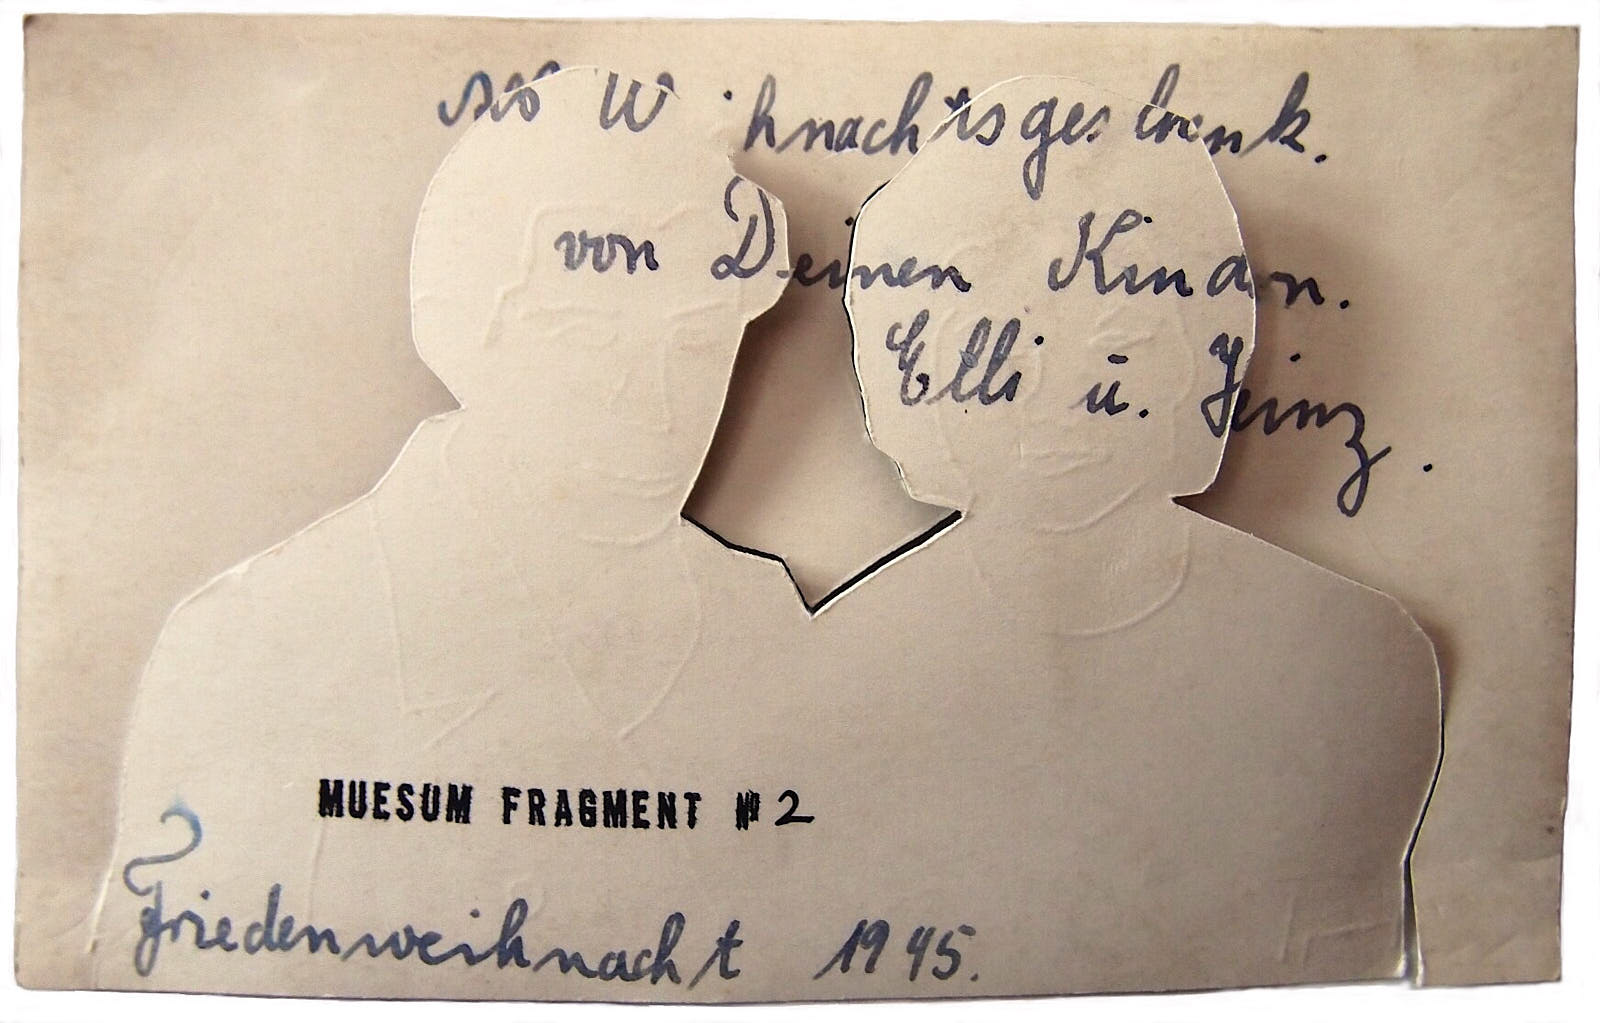 Als W ihnachtsges henk.
von Deinen Kindern.
Elli u. Heinz.
MUESUM FRAGMENT Nº 2
Friedenweihnacht 1945.